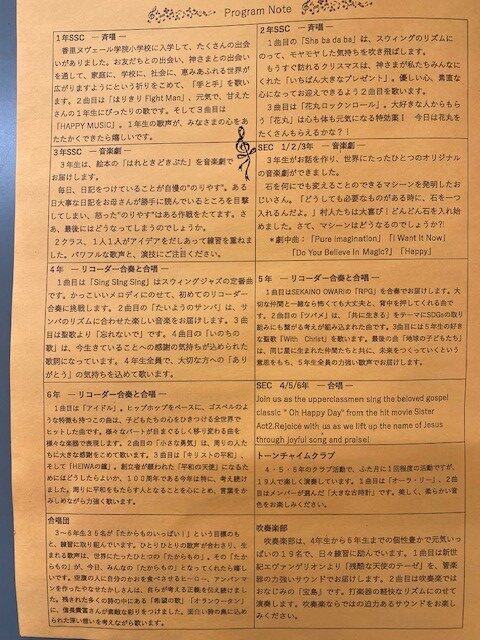 Program Note
1年SSC ― 斉唱 ―
香里ヌヴェール学院小学校に入学して、たくさんの出会
いがありました。お友だちとの出会い、神さまとの出会い
を通して、家庭に、学校に、社会に、恵みあふれる世界が
広がりますようにという祈りをこめて、「手と手」を歌い
ます。2曲目は「はりきり Fight Man」、元気で、甘えた
さんの1年生にぴったりの歌です。そして3曲目は
「HAPPY MUSIC」。1年生の歌声が、みなさまの心をあ
たたかくできたら嬉しいです。
2年SSC ― 斉唱 ―
1曲目の「Sha ba da ba」は、スウィングのリズムに
のって、モヤモヤした気持ちを吹き飛ばします。
もうすぐ訪れるクリスマスは、神さまが私たちみんなに
くれた「いちばん大きなプレゼント」。優しい心、素直な
心になってお迎えできるよう2曲目を歌います。
3曲目は「花丸ロックンロール」。大好きな人からもら
う「花丸」は心も体も元気になる特効薬！ 今日は花丸を
たくさんもらえるかな？！
3年SSC ― 音楽劇 ―
3年生は、絵本の「はれときどきぶた」を音楽劇で
お届けします。
毎日、日記をつけていることが自慢の"のりやす"。ある
日大事な日記をお母さんが勝手に読んでいるところを目撃
してしまい、怒った"のりやす"はある作戦をたてます。さ
あ、最後にはどうなってしまうのでしょうか。
2クラス、1人1人がアイデアをだしあって練習を重ねまし
た。パワフルな歌声と、演技にご注目ください。
SEC 1/2/3年 ― 音楽劇 ―
3年生がお話を作り、世界にたったひとつのオリジナル
の音楽劇ができました。
石を何にでも変えることのできるマシーンを発明したお
じいさん。「どうしても必要なものがある時に、石を一つ
入れるんだよ。」村人たちは大喜び！どんどん石を入れ始
めました。さて、マシーンはどうなるのでしょうか?!
*劇中曲：「Pure Imagination」「I Want It Now」
「Do You Believe In Magic?」「Happy」
4年 ― リコーダー合奏と合唱 ―
1曲目は「Sing Sing Sing」はスウィングジャズの定番曲
です。かっこいいメロディにのせて、初めてのリコーダー
合奏に挑戦します。2曲目の「たいようのサンバ」は、サ
ンバのリズムに合わせた楽しい音楽をお届けします。3曲
目は聖歌より「忘れないで」です。4曲目の「いのちの
歌」は、今生きていることへの感謝の気持ちが込められた
歌詞になっています。4年生全員で、大切な方への「あり
がとう」の気持ちを込めて歌います。
5年 ― リコーダー合奏と合唱 ―
1曲目はSEKAINO OWARIの「RPG」を合奏でお届けします。大
切な仲間と一緒なら怖くても大丈夫と、背中を押してくれる曲で
す。2曲目の「ツバメ」は、「共に生きる」をテーマにSDGsの取り
組みにも繋がる考えが組み込まれた曲です。3曲目は5年生の好き
な聖歌「With Christ」を歌います。最後の曲「地球の子どもたち」
は、同じ星に生まれた仲間たちと共に、未来をつくっていくという
意思をもち、5年生全員の力強い歌声でお届けします。
6年 ― リコーダー合奏と合唱 ―
1曲目は「アイドル」。ヒップホップをベースに、ゴスペルの
ような特徴も持つこの曲は、子どもたちの心をひきつける全世界で
ヒットした曲です。様々なパートが目まぐるしく移り変わる曲を
様々な楽器で表現します。2曲目の「小さな勇気」は、周りの人た
ちに大きな感謝をこめて歌います。3曲目は「キリストの平和」、
そして「HEIWAの鐘」。創立者が願われた「平和の天使」になるた
めにはどうしたらよいか、100周年である今年は特に、考え続けて
きました。周りに平和をもたらす人となることを心にとめ、言葉をかみ
しめながら力強く歌います。
SEC 4/5/6年 ― 合唱 ―
Join us as the upperclassmen sing the beloved gospel
classic " Oh Happy Day" from the hit movie Sister
Act2.Rejoice with us as we lift up the name of Jesus
through joyful song and praise!
トーンチャイムクラブ
4・5・6年のクラブ活動で、ふた月に1回程度の活動ですが、
19人で楽しく演奏しています。1曲目は「オーラ・リー」、2曲
目はメンバーが選んだ「大きな古時計」です。美しく、柔らかい音
色をお楽しみください。
合唱団
3～6年生35名が「たからものいっぱい！」という目標のも
と、練習に取り組んでいます。ひとりひとりの歌声が合わさり、生
まれる歌声は、世界にたったひとつの「たからもの」。その「たか
らもの」が、今日、みんなの「たからもの」となってくれたら嬉し
いです。空腹の人に自分のかおを食べさせるヒーロー、アンパンマ
ンを作ったやなせたかしさんは、自らが考える正義を伝え続けまし
た。残された多くの詩の中にある「希望の歌」「オランウータン」
に、信長貴富さんが素敵な彩りをつけました。面白い詩の奥に込め
られた深い想いを考えながら歌います。
吹奏楽部
吹奏楽部は、4年生から6年生までの個性豊かで元気いっ
ぱいの19名で、日々練習に励んでいます。1曲目は新世
紀エヴァンゲリオンより「残酷な天使のテーゼ」を、管楽
器の力強いサウンドでお届けします。2曲目は吹奏楽では
おなじみの「宝島」です。打楽器の軽快なリズムにのせて
演奏します。吹奏楽ならではの迫力あるサウンドをお楽し
みください。